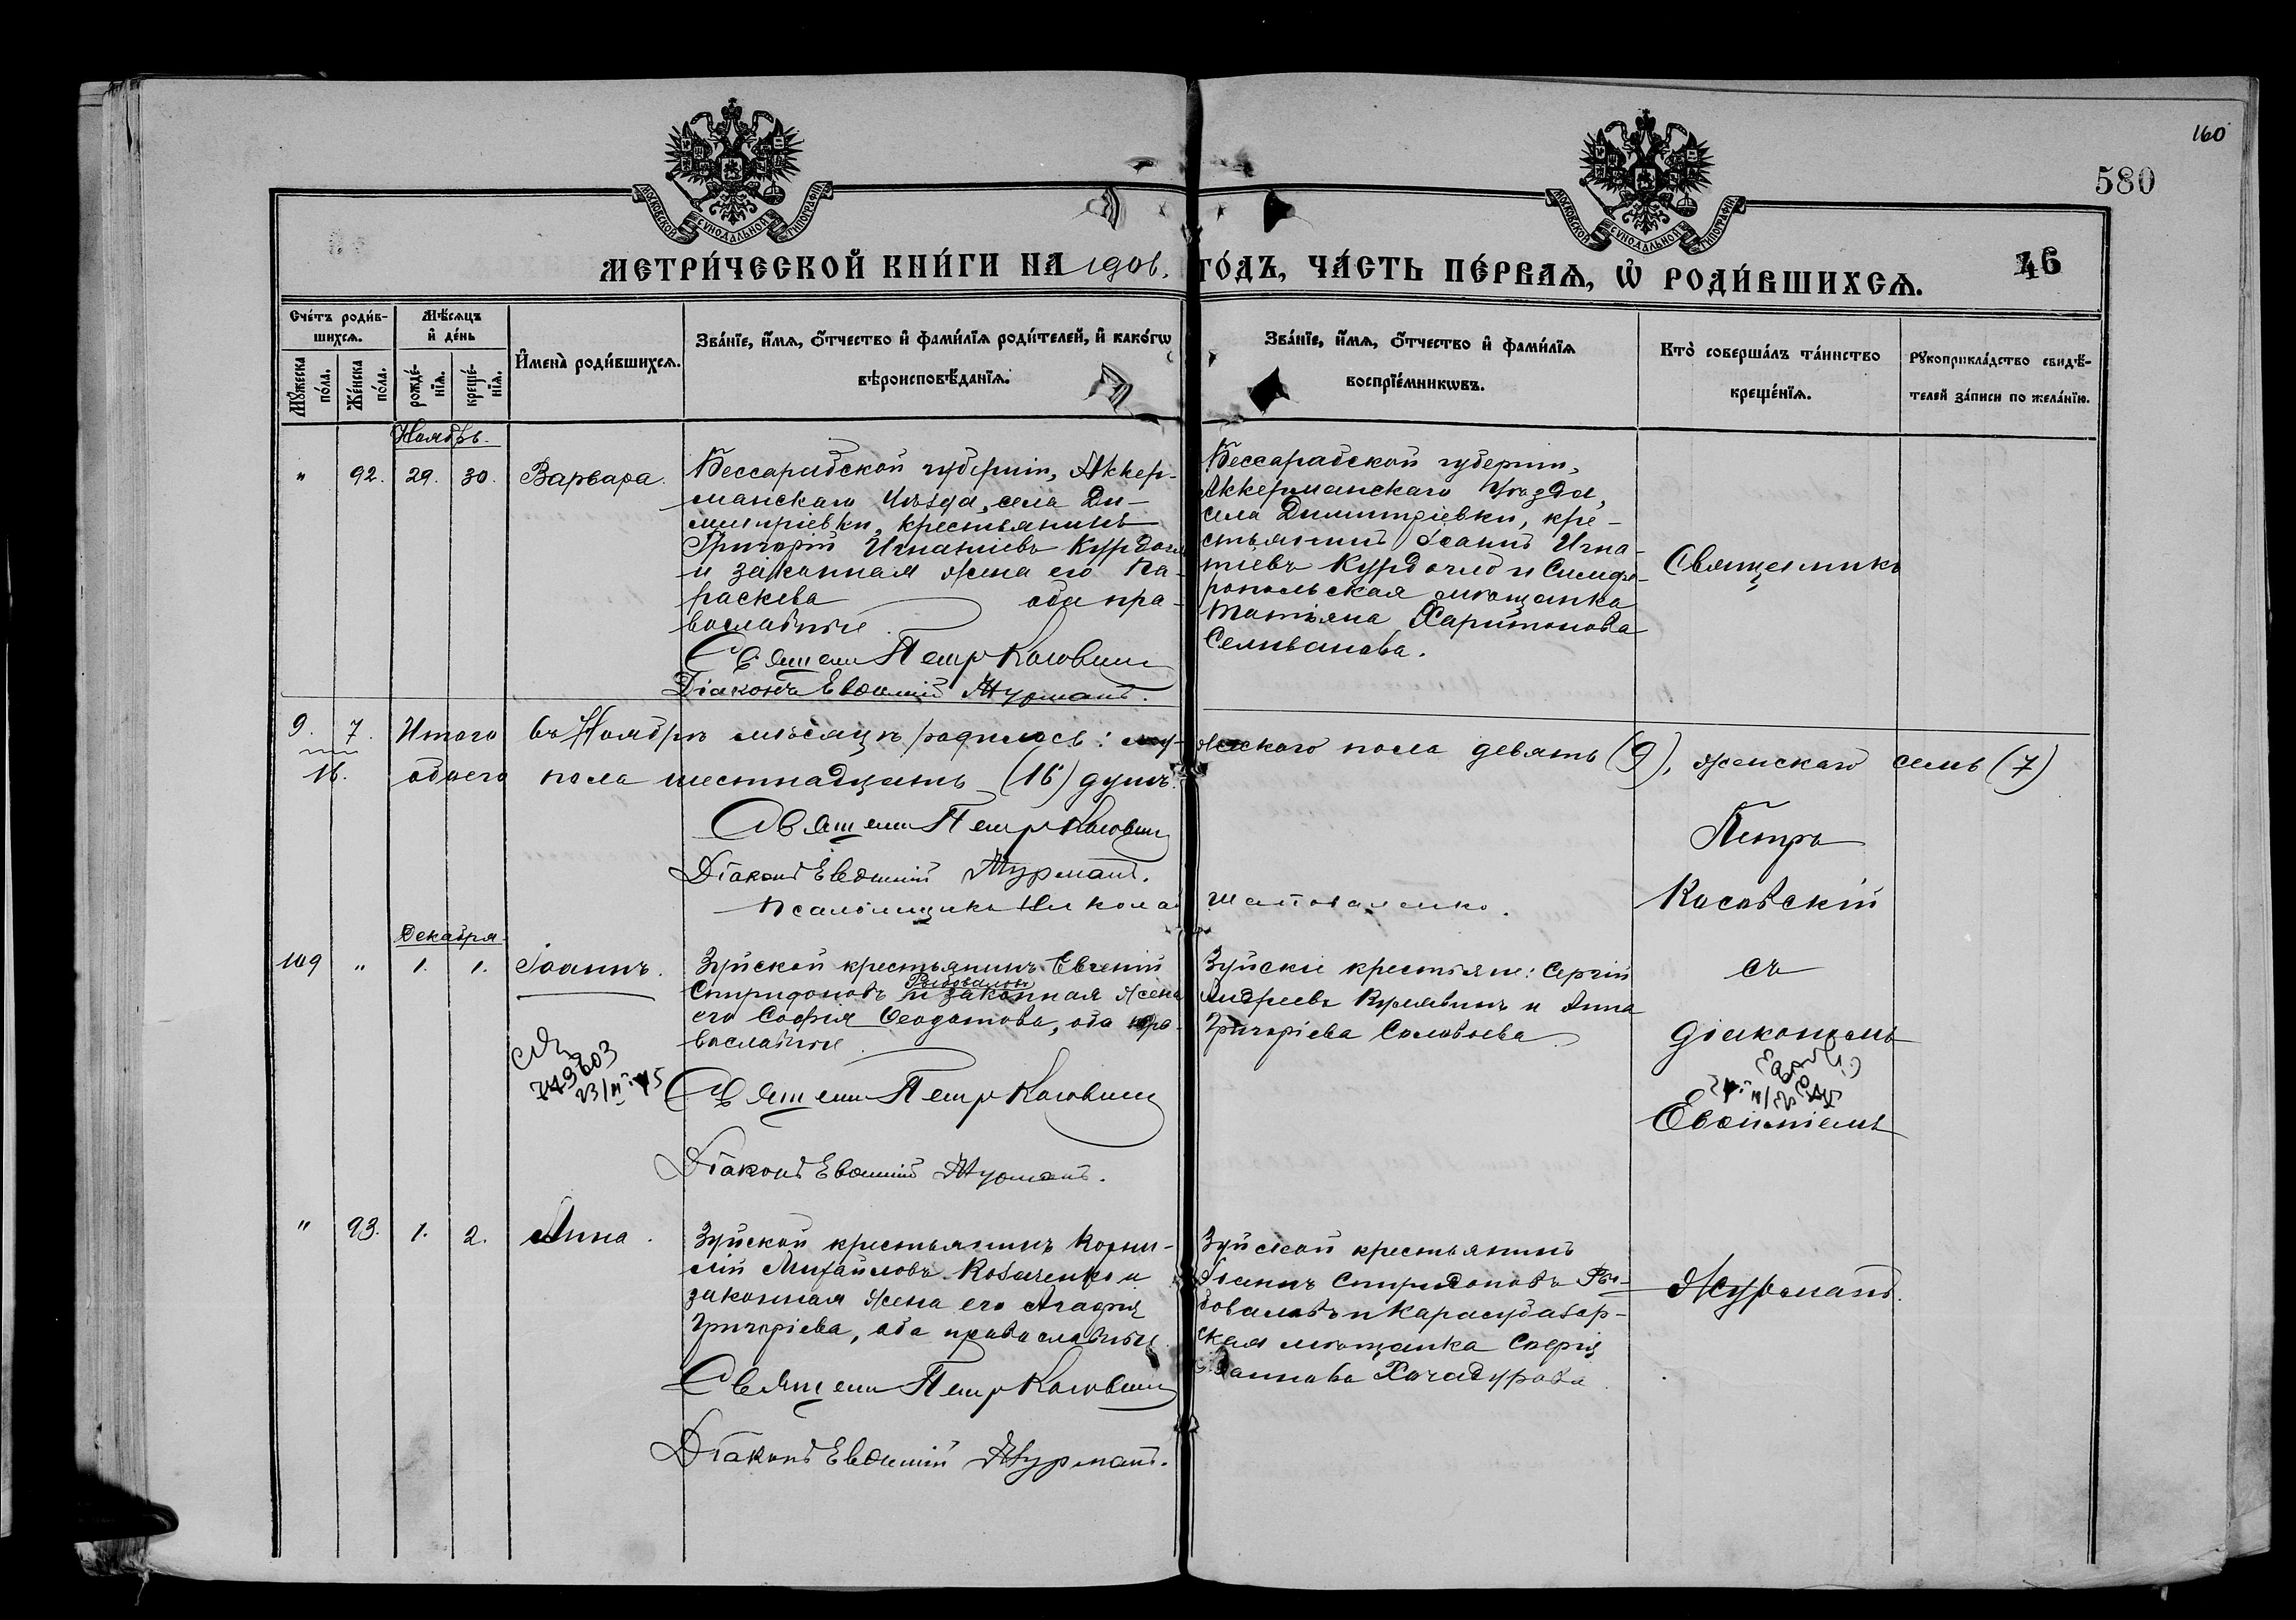 160
580
46
МОСКОВСКОЙ СѴНОДАЛЬНОЙ ТИПОГРАФІИ
МОСКОВСКОЙ СѴНОДАЛЬНОЙ ТИПОГРАФІИ
МЕТРИ́ЧЕСКОЙ КНИ́ГИ НА 1906. ГО́ДЪ, ЧА́СТЬ ПЕ́РВАѦ, Ѡ҆ РОДИ́ВШИХСѦ.
Сче́тъ роди́в-
шихсѧ.
Мꙋ́жеска по́ла.
Же́нска по́ла.
Мѣ́сѧцъ
и҆ де́нь
рожде́-
нїѧ.
креще́-
нїѧ.
И҆мена̀ роди́вшихсѧ.
Зва́нїе, и҆́мѧ, ѻ҆́тчество и҆ фами́лїѧ роди́телей, и҆ како́гѡ
вѣроисповѣ́данїѧ.
Зва́нїе, и҆́мѧ, ѻ҆́тчество и҆ фами́лїѧ
воспрїе́мникѡвъ.
Кто̀ соверша́лъ та́инство
креще́нїѧ.
Рꙋкоприкла́дство свидѣ́-
телей за́писи по жела́нїю.
Ноябрь.
" 92. 29. 30. Варвара.
Бессарабской губерніи, Аккер-
манскаго Уѣзда, села Ди-
митріевки, крестьянинъ
Григорій Игнатіевъ Курдогло
и законная жена его Па-
раскева оба пра-
вославные.
Священ Петр Косовский
Діаконъ Евѳимій Журманъ.
Бессарабской губерніи,
Аккерманскаго Уѣзда,
села Димитріевки, кре-
стьянинъ Іоаннъ Игна-
тіевъ Курдогло и Симфе-
ропольская мѣщанка
Татьяна Харитонова
Селиванова.
Священникъ
9. 7. Итого въ Ноябрѣ мѣсяцѣ родилось: мужскаго пола девять (9), женскаго семь (7)
16. обоего пола шестнадцать (16) душъ.
Священ Петр Косовский
Діаконъ Евѳимій Журманъ.
Псаломщикъ Николай Шаповаленко.
Петръ
Косовскій
Декабря.
109 " 1. 1. Іоаннъ.
Зуйской крестьянинъ Евгеній
Рыбовалов
Спиридоновъ и законная жена
его Софія Ѳеодотова, оба пра-
вославные.
Священ Петр Косовский
Діаконъ Евѳимій Журманъ.
Зуйскіе крестьяне: Сергій
Андреевъ Курлявинъ и Анна
Григоріева Соловьева
съ
діакономъ
Евѳиміемъ
749603
23/II 45
" 93. 1. 2. Анна.
Зуйской крестьянинъ Корни-
лій Михайловъ Козаченко и
законная жена его Агафія
Григоріева, оба православные
Священ Петр Косовский
Діаконъ Евѳимій Журманъ.
Зуйской крестьянинъ
Іоаннъ Спиридоновъ Ры-
боваловъ и Карасубазар-
ская мѣщанка Софія
Іоаннова Хачадурова
Журманъ.